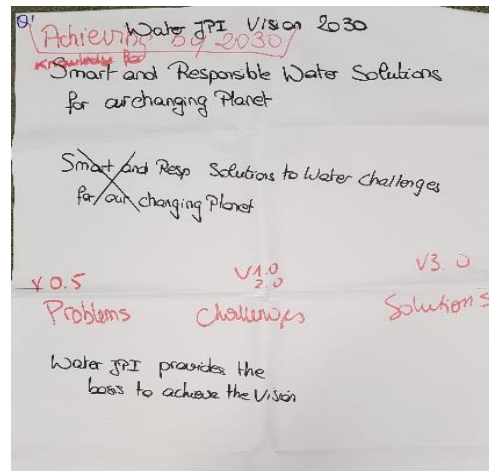 Q1
Water JPI Vision 2030
Achieving by 2030
Knowledge for
Smart and Responsible Water Solutions
for our changing Planet
Smart and Resp Solutions to Water challenges
for our changing Planet
V 0.5
V1.0
2.0
V3.0
Problems
Challenges
Solutions
Water JPI provides the
basis to achieve the Vision